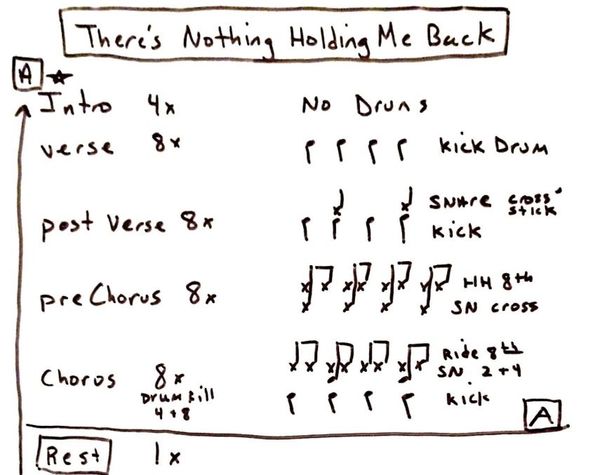 There's Nothing Holding Me Back
A
Intro 4x No Drums
verse 8x kick Drum
post Verse 8x SNare cross stick
kick
preChorus 8x HH 8th
SN cross
Chorus 8x Ride 8th
SN 2+4
Drum fill
4+8
kick
A
Rest 1x